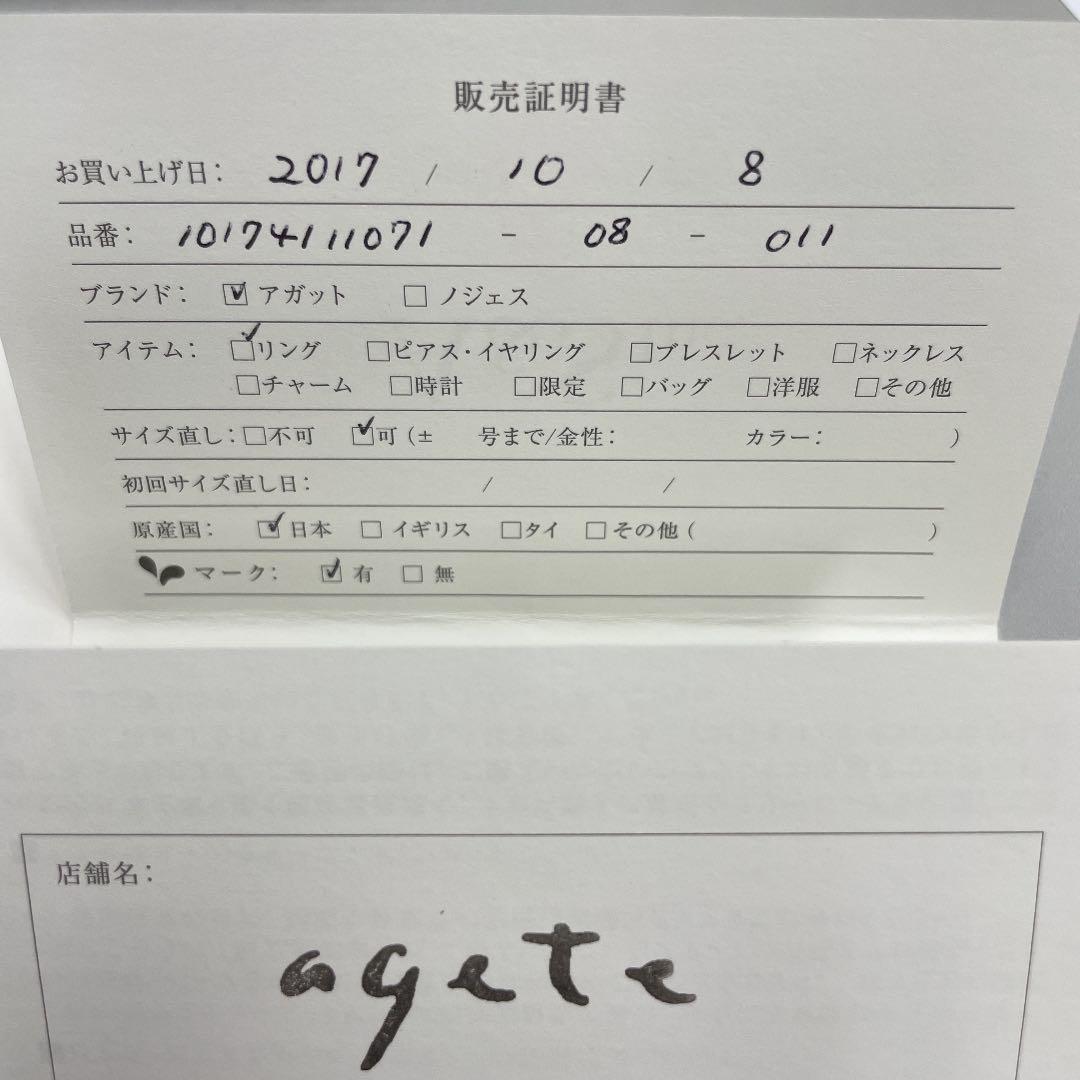 販売証明書
お買い上げ日: 2017 / 10 / 8
品番: 10174111071 - 08 - 011
ブランド: ☑ アガット □ ノジェス
アイテム: ☑リング □ピアス・イヤリング □ブレスレット □ネックレス
□チャーム □時計 □限定 □バッグ □洋服 □その他
サイズ直し: □不可 ☑可 (± 号まで/金性: カラー: )
初回サイズ直し日: / /
原産国: ☑日本 □ イギリス □タイ □ その他 ( )
マーク: ☑ 有 □ 無
店舗名:
agete